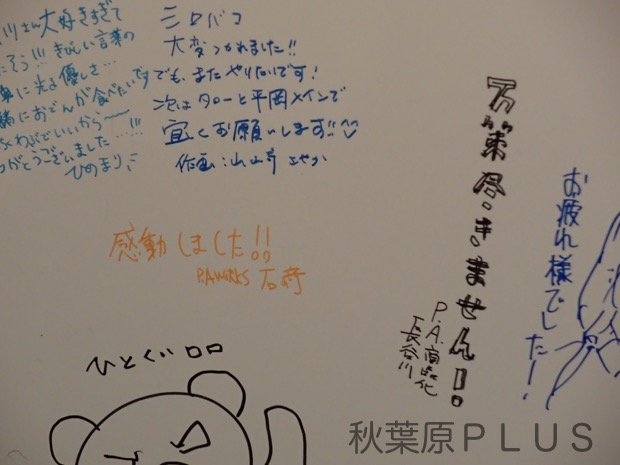 川さん大好きすぎて
そう!!! きびしい言葉の
裏に光る優しさ…
緒におでんが食べたいです
わぶでいいから〜
がとうございました…!!!
ひのまり
シロバコ
大変つかれました!!
でも、またやりたいです!
次はタローと平岡メインで
宜しくお願いします!!
作画:山﨑 さやか
感動しました!!
P.A.WORKS 石﨑
ひとくい
万策尽きません!
P.A.商品化
長谷川
お疲れ様でしたー!
秋葉原PLUS